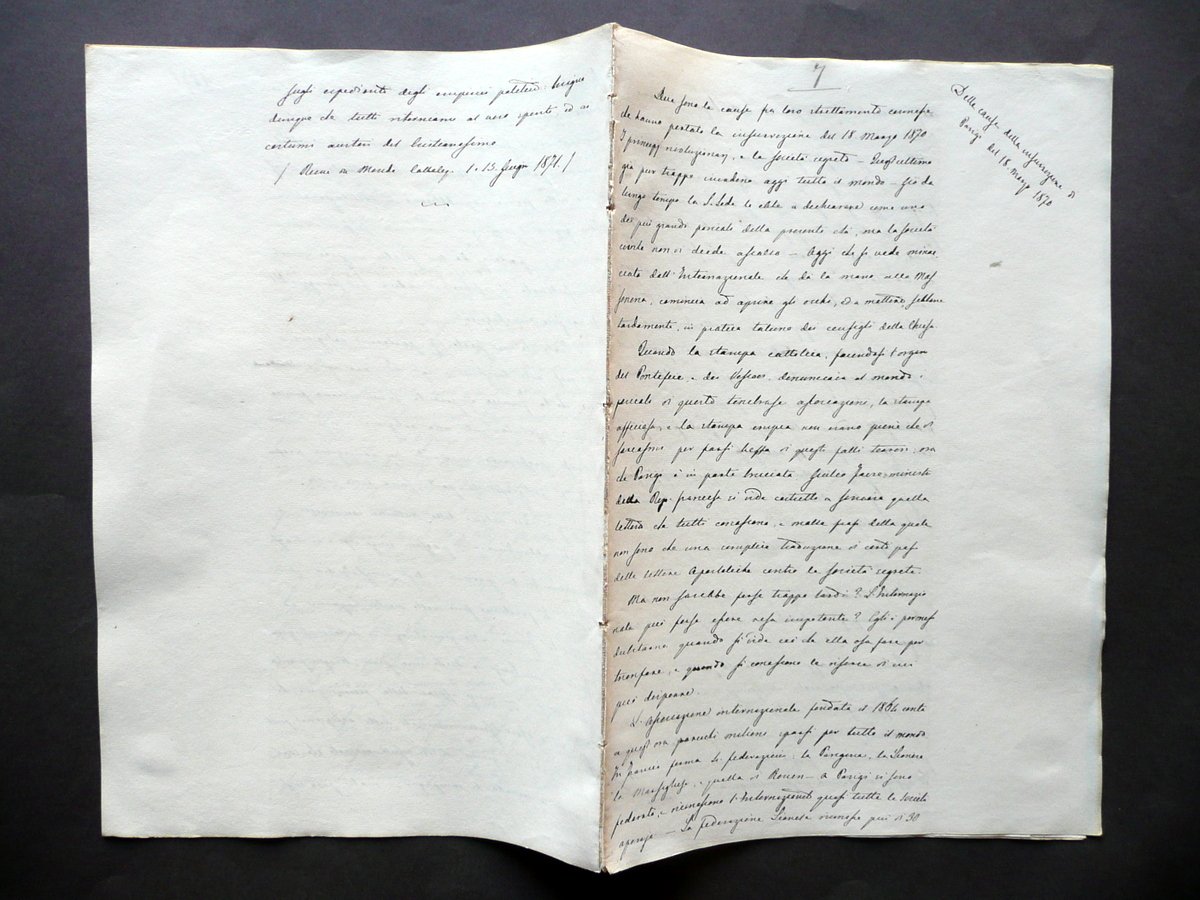 sugli espedienti degli empirici politici. Bisogna
dunque che tutti ritorniamo al vero spirito ed ai
costumi austeri del Cristianesimo
( Revue du Monde Catholiq. 1. 13. Giugn 1871. )
7
Della cause della insurrezione di
Parigi del 18 Marzo 1870
Due sono le cause fra loro strettamente connesse
che hanno portato la insurrezione del 18 Marzo 1870
I principj rivoluzionarj, e la società segreta — Quest'ultima
già pur troppo invadeva oggi tutto il mondo — Già da
lungo tempo la S. Sede la ebbe a dichiarare come uno
dei più grandi pericoli della presente età, ma la società
civile non vi diede ascolto — Oggi che si vede minac
ciata dall'Internazionale che dà la mano alla Mas
soneria, comincia ad aprire gli occhi, ed a mettere, sebbene
tardamente, in pratica taluno dei consigli della Chiesa.
Quando la stampa cattolica, facendosi l'organo
del Pontefice, e dei Vescovi, denunciava al mondo i
pericoli di questa tenebrosa associazione, la stampa
officiosa, e la stampa empia non erano piene che di
sarcasmi per farsi beffa di questi fatti terrori; ora
che Parigi è in parte bruciata Giulio Favre ministro
della Rep. francese si vide costretto a scrivere quella
lettera che tutti conoscono, e molte frasi della quale
non sono che una semplice traduzione di certe frasi
delle lettere Apostoliche contro le società segrete.
Ma non sarebbe forse troppo tardi? L'Internazio
nale può forse essere resa impotente? Egli è permesso
dubitarne quando si vide ciò che ella osa fare per
trionfare, e quando si conoscono le risorse di cui
può disporre.
L'Associazione internazionale fondata il 1864 conta
a quest'ora parecchi milioni sparsi per tutto il mondo
In Francia forma 4 federazioni: la Parigina, la Lionese
la Marsigliese, e quella di Rouen — A Parigi si sono
federate, e riunirono l'Internazionale quasi tutte le Società
operaje — La federazione Lionese riunisce più di 30